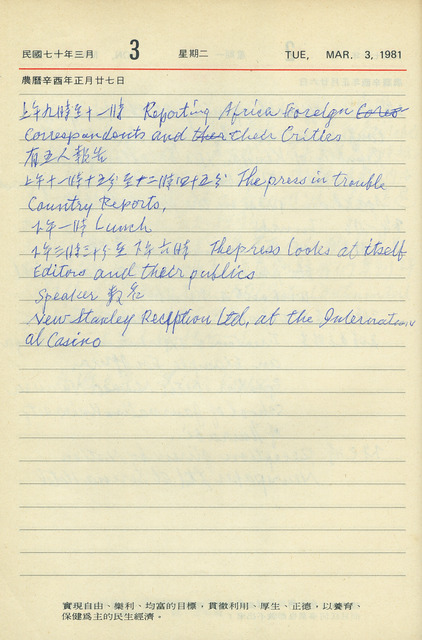 民國七十年三月 3 星期二 TUE, MAR. 3, 1981
農曆辛酉年正月廿七日
上午九時至十一時 Reporting Africa Foreign Cores
Correspondents and their their Critics
有五人報告
上午十一時十五分至十二時四十五分 The press in trouble
Country Reports,
下午一時 Lunch
下午三時三十分至下午六時 The press looks at itself
Editors and their publics
Speaker 數名
New Stanley Reception Ltd, at the Internation
al Casino
實現自由、樂利、均富的目標，貫徹利用、厚生、正德，以養育、
保健為主的民生經濟。